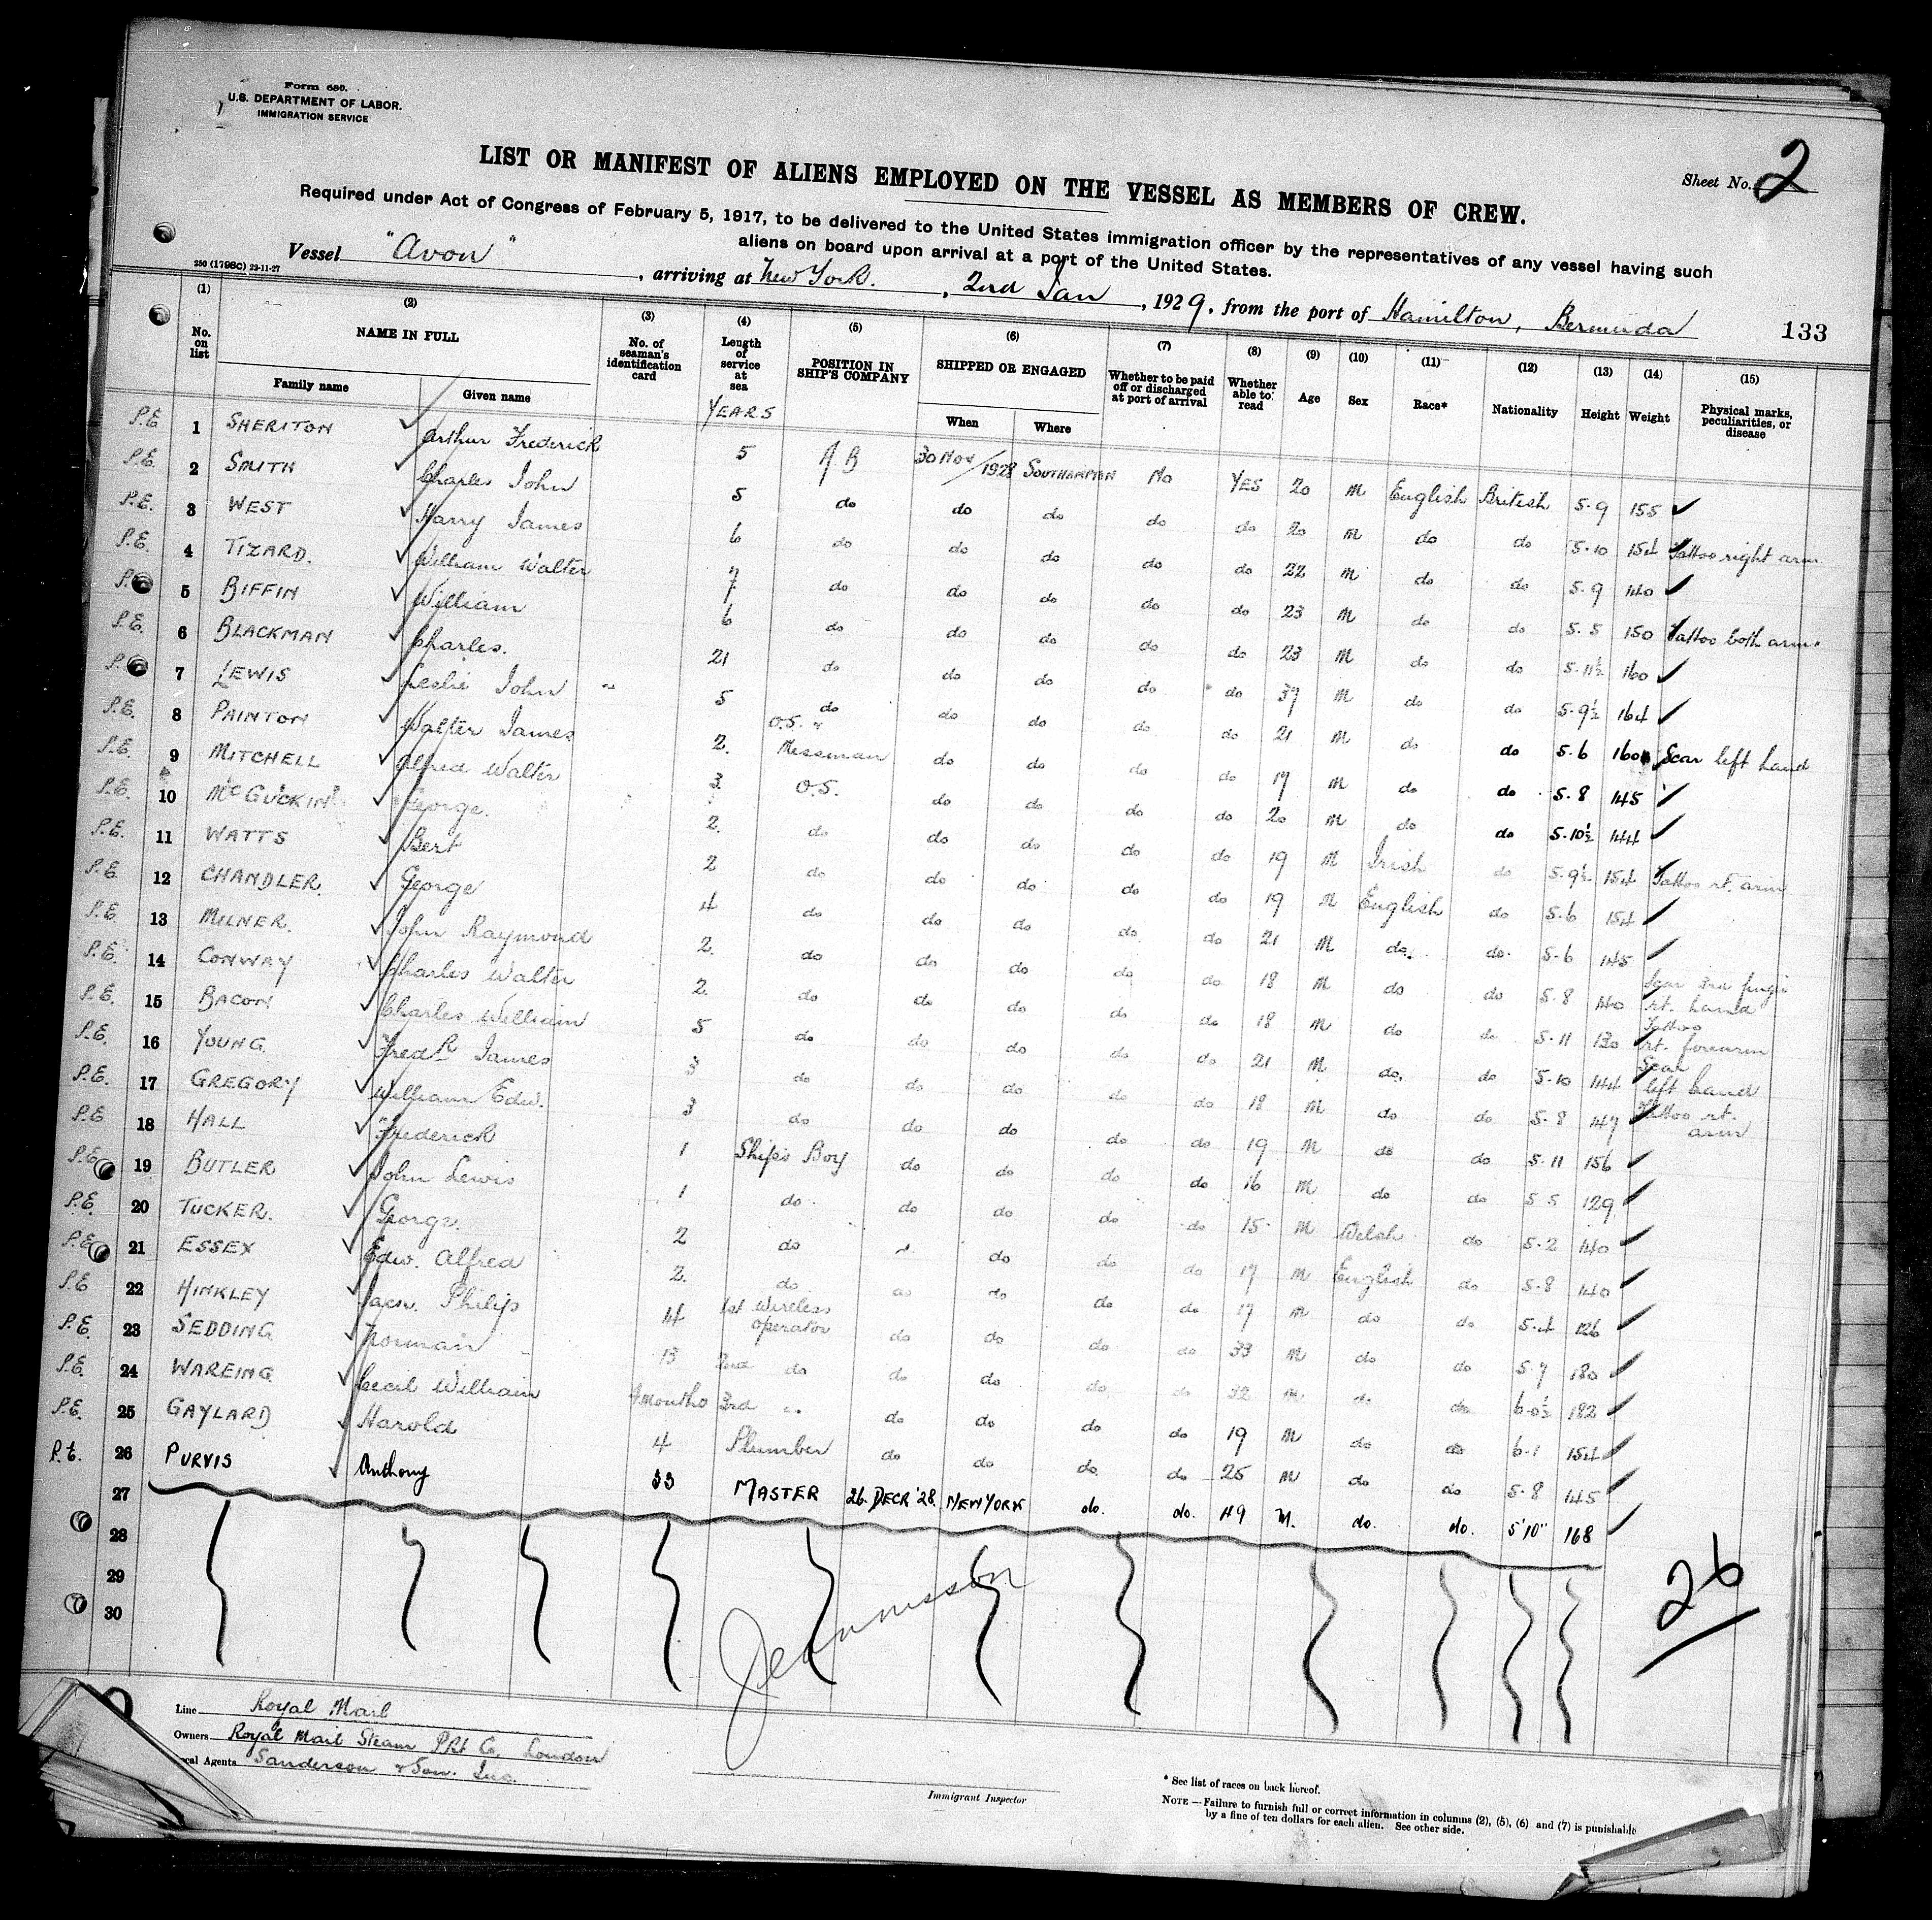 Form 680.
U.S. DEPARTMENT OF LABOR.
IMMIGRATION SERVICE
LIST OR MANIFEST OF ALIENS EMPLOYED ON THE VESSEL AS MEMBERS OF CREW.
Sheet No. 2
Required under Act of Congress of February 5, 1917, to be delivered to the United States immigration officer by the representatives of any vessel having such
aliens on board upon arrival at a port of the United States.
Vessel "Avon", arriving at New York., 2nd Jan, 1929, from the port of Hamilton, Bermuda
250 (1798C) 23-11-27
133
(1) (2) (3) (4) (5) (6) (7) (8) (9) (10) (11) (12) (13) (14) (15)
No. on list NAME IN FULL No. of seaman's identification card Length of service at sea POSITION IN SHIP'S COMPANY SHIPPED OR ENGAGED Whether to be paid off or discharged at port of arrival Whether able to read Age Sex Race* Nationality Height Weight Physical marks, peculiarities, or disease
Family name Given name YEARS When Where
P.E 1 SHERITON Arthur Frederick 5 AB 30 Nov/1928 SOUTHAMPTON No YES 20 M English British 5-9 155
P.E. 2 SMITH Charles John 5 do do do do do 20 M do do 5-10 154 Tattoo right arm
P.E. 3 WEST Harry James 6 do do do do do 22 M do do 5-9 140
P.E. 4 TIZARD. William Walter 7 do do do do do 23 M do do 5-5 150 Tattoo both arms
5 BIFFIN William 6 do do do do do 23 M do do 5-11½ 160
P.E. 6 BLACKMAN Charles. 21 do do do do do 37 M do do 5-9½ 164
7 LEWIS Leslie John 5 do do do do do 21 M do do 5-6 160 Scar left hand
P.E. 8 PAINTON Walter James 2. O.S. Messman do do do do 17 M do do 5-8 145
P.E. 9 MITCHELL Alfred Walter 3 O.S. do do do do 20 M do do 5-10½ 144
P.E. 10 McGUCKIN George. 2. do do do do do 19 M Irish do 5-9½ 154 Tattoo rt. arm
P.E. 11 WATTS Bert 2 do do do do do 19 M English do 5-6 154
P.E. 12 CHANDLER. George 4 do do do do do 21 M do. do. 5-6 145
P.E. 13 MILNER. John Raymond 2. do do do do do 18 M do do 5-8 140 Scar 3rd finger rt. hand
P.E. 14 CONWAY Charles Walter 2. do do do do do 18 M do do 5-11 130 Tattoo rt. forearm
P.E. 15 BACON Charles William 5 do do do do do 21 M do. do 5-10 144 Scar left hand
P.E. 16 YOUNG. Fredk James 3 do do do do do 18 M do do 5-8 147 Tattoo rt. arm
P.E. 17 GREGORY William Edw. 3 do do do do do 19 M do do 5-11 156
P.E 18 HALL Frederick 1 Ship's Boy do do do do 16 M do do 5 5 129
P.E. 19 BUTLER John Lewis 1 do do do do do 15 M Welsh do 5-2 140
P.E. 20 TUCKER. George. 2 do do do do do 17 M English do 5-8 140
P.E. 21 ESSEX Edw. Alfred 2. do do do do do 17 M do do 5-4 126
P.E 22 HINKLEY Philip 14 1st Wireless operator do do do do 33 M do do 5-7 180
P.E. 23 SEDDING Norman 13 2nd do do do do do 32 M do do 6-0½ 182
P.E. 24 WAREING Cecil William months 3rd do do do do 19 M do do 6-1 154
P.E. 25 GAYLARD Harold 4 Plumber do do do. do 25 M do do 5-8 145
P.E. 26 PURVIS Anthony 33 MASTER 26. DECR '28. NEW YORK do. do. 49 M. do. do. 5'10" 168
27
28
29
30
26
Line Royal Mail
Owners Royal Mail Steam Pkt Co. London
Local Agents Sanderson & Son. Inc.
Immigrant Inspector
* See list of races on back hereof.
NOTE — Failure to furnish full or correct information in columns (2), (5), (6) and (7) is punishable
by a fine of ten dollars for each alien. See other side.